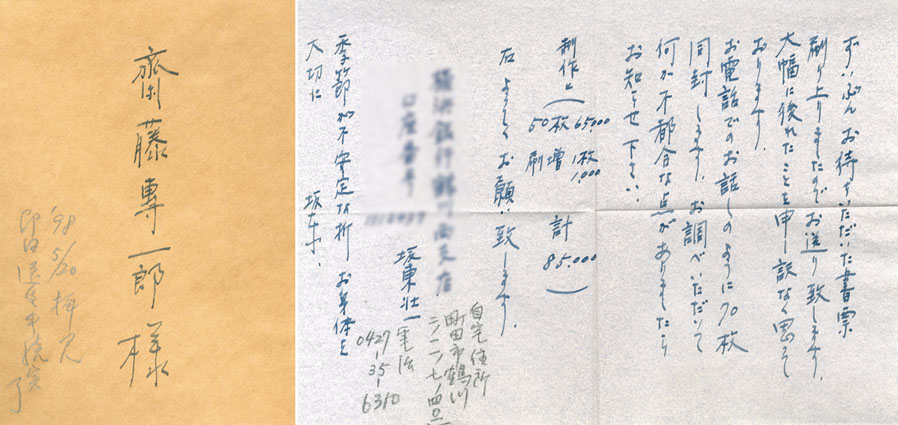 齋藤專一郎様
'98 5/20 拝見
ずいぶんお待ちいただいた書票
刷り上りましたのでお送り致します。
大幅に後れたことを申し訳なく思って
おります。
お電話でのお話しのように70枚
同封します。お調べいただいて
何か不都合な点がありましたら
お知らせ下さい。
制作と 65,000
50枚増刷 1枚 1,000
計 85,000
右よろしくお願い致します。
口座番号
坂東壮一
季節が不安定な折 お身体を
大切に
坂東.
自宅住所
町田市鶴川
電話
0427-35-6310